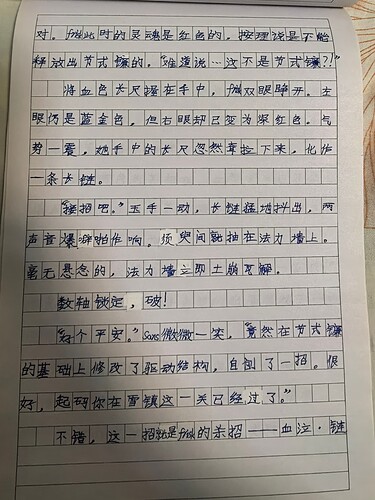 对。frisk此时的灵魂是红色的，按理说是不能
释放出节式镰的。“难道说…这不是节式镰？！”
将血色长尺握在手中，frisk双眼睁开。左
眼仍是蓝金色，但右眼却已变为深红色。气
势一震，她手中的长尺忽然耷拉下来，化作
一条长链。
“接招吧。”玉手一动，长链猛地抖出，两
声音爆噼啪作响。须臾间就抽在法力墙上。
毫无悬念的，法力墙立即土崩瓦解。
数轴锁定，破！
“好个平安。”Sans微微一笑，“竟然在节式镰
的基础上修改了驱动结构，自创了一招。很
好，起码你在雪镇这一关已经过了。”
不错，这一招就是frisk的杀招——血泣·链